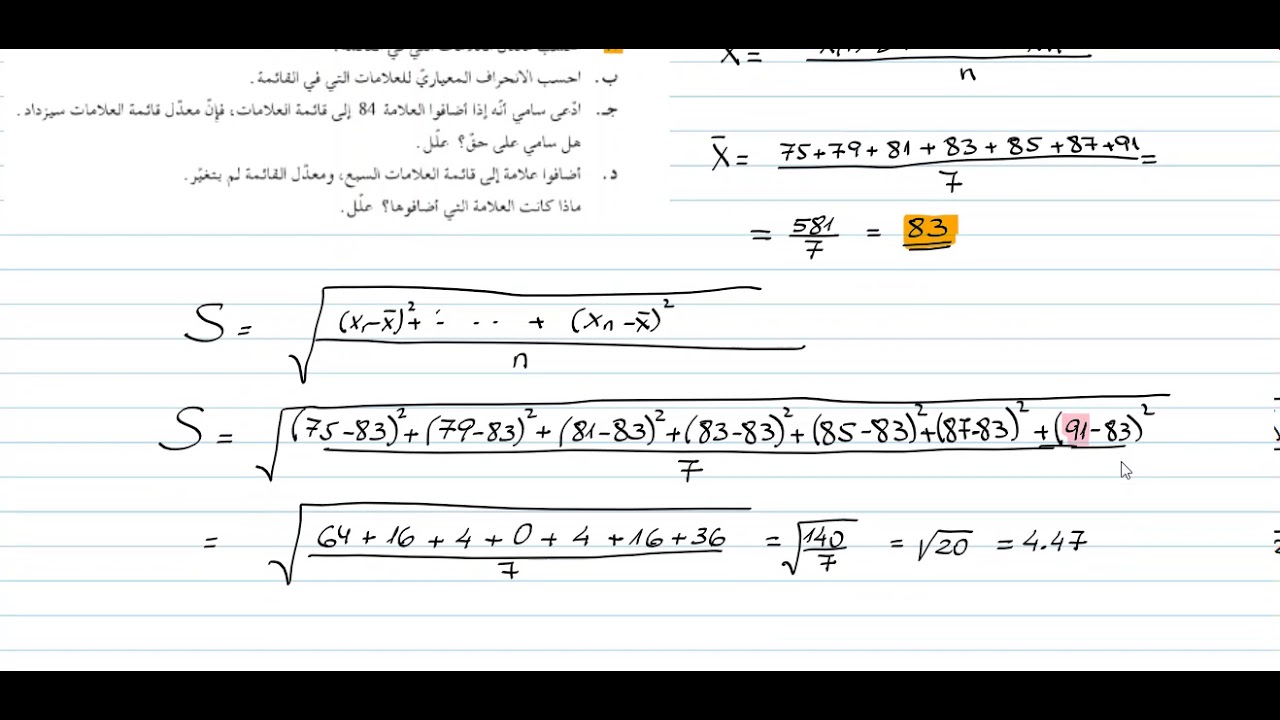 ب. احسب الانحراف المعياريّ للعلامات التي في القائمة.
جـ. ادّعى سامي أنّه إذا أضافوا العلامة 84 إلى قائمة العلامات، فإنّ معدّل قائمة العلامات سيزداد.
هل سامي على حقّ؟ علّل.
د. أضافوا علامة إلى قائمة العلامات السبع، ومعدّل القائمة لم يتغيّر.
ماذا كانت العلامة التي أضافوها؟ علّل.
X̄ =
n
X̄ = (75+79+81+83+85+87+91)/7 =
= 581/7 = 83
S = √(((x₁-x̄)²+ ... + (xₙ-x̄)²)/n)
S = √(((75-83)²+(79-83)²+(81-83)²+(83-83)²+(85-83)²+(87-83)²+(91-83)²)/7)
= √((64+16+4+0+4+16+36)/7) = √(140/7) = √20 = 4.47